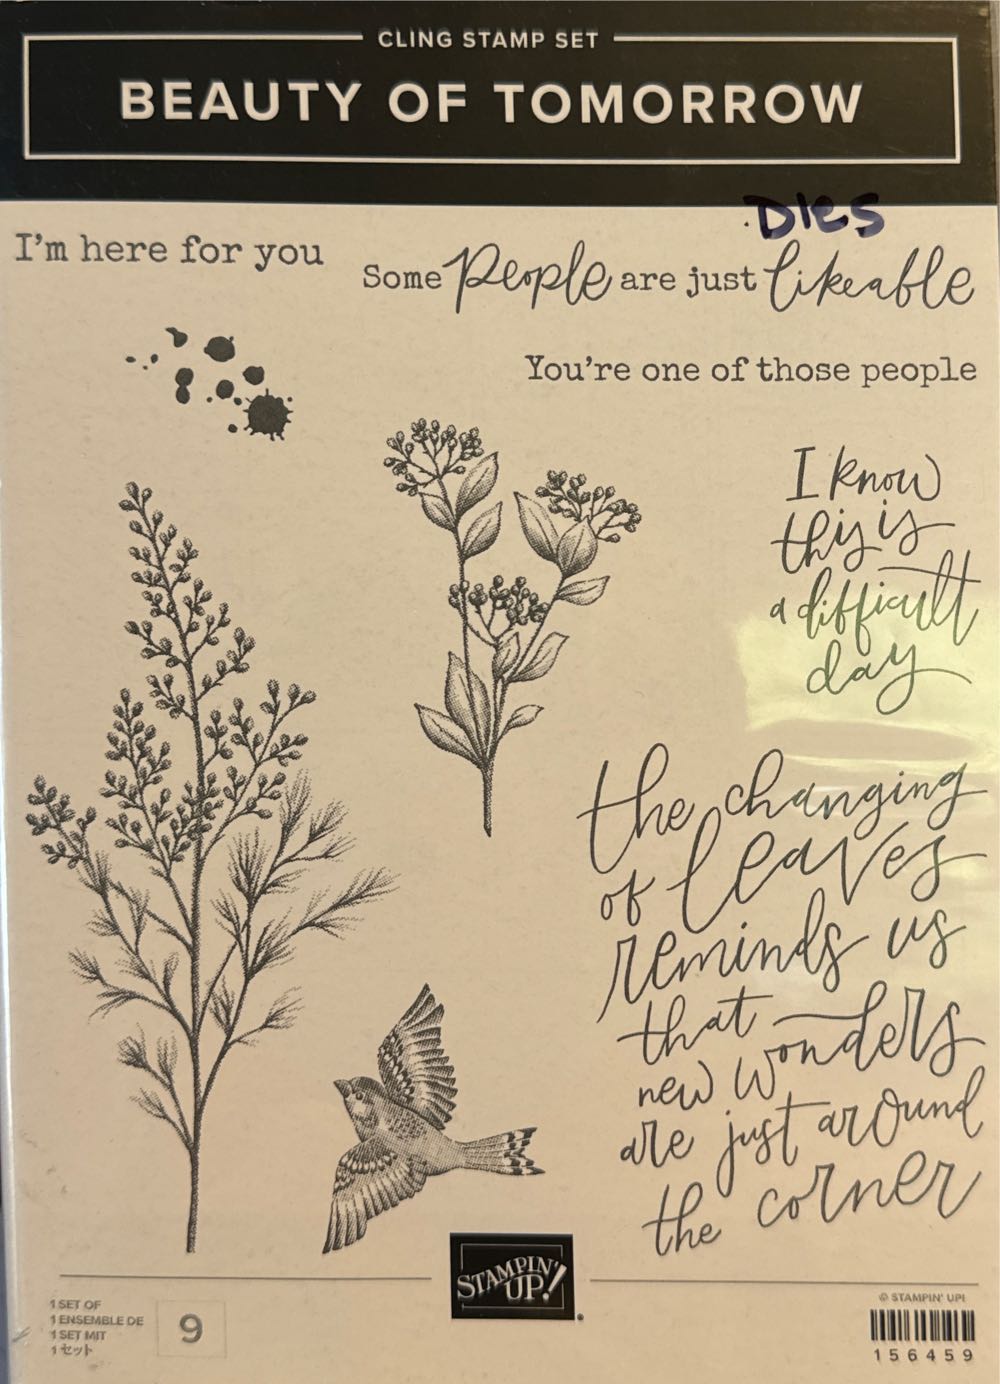 CLING STAMP SET
BEAUTY OF TOMORROW
DIES
I'm here for you
Some People are just likeable
You're one of those people
I know
this is
a difficult
day
the changing
of leaves
reminds us
that wonders
new
are just around
the corner
STAMPIN'
UP!®
1 SET OF
1 ENSEMBLE DE
1 SET MIT
1セット
9
© STAMPIN' UP!
156459